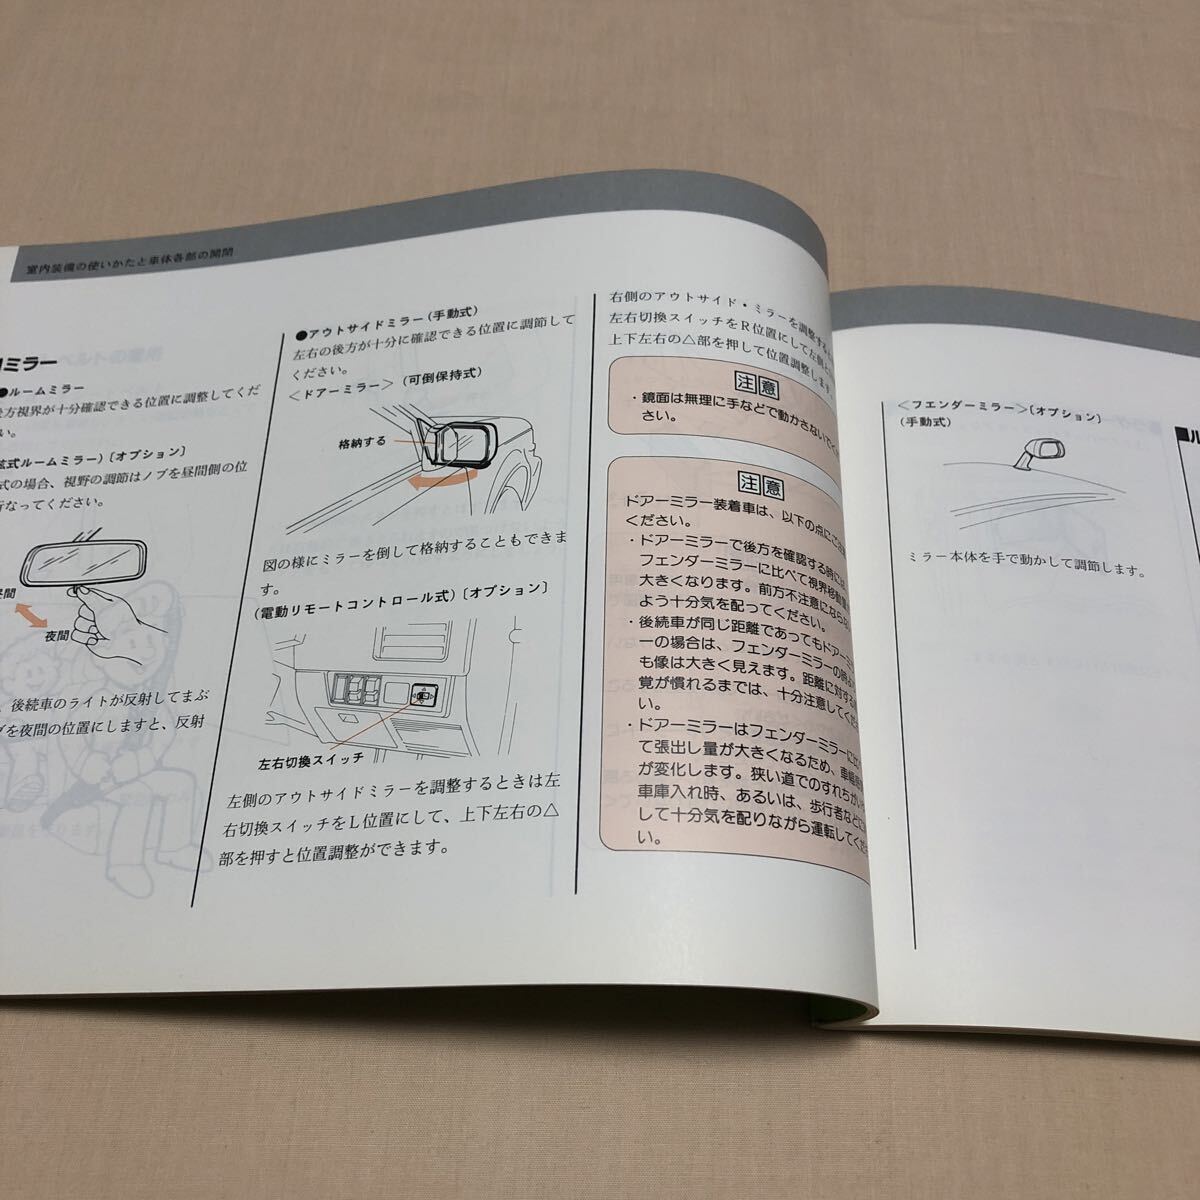 室内装備の使いかたと車体各部の開閉
ミラー
●ルームミラー
後方視界が十分確認できる位置に調整してくだ
い。
式ルームミラー)〔オプション〕
式の場合、視野の調節はノブを昼間側の位
行なってください。
昼間
夜間
、後続車のライトが反射してまぶ
ブを夜間の位置にしますと、反射
●アウトサイドミラー(手動式)
左右の後方が十分に確認できる位置に調節して
ください。
＜ドアーミラー＞(可倒保持式)
格納する
図の様にミラーを倒して格納することもできま
す。
(電動リモートコントロール式)〔オプション〕
左右切換スイッチ
左側のアウトサイドミラーを調整するときは左
右切換スイッチをL位置にして、上下左右の△
部を押すと位置調整ができます。
右側のアウトサイド・ミラーを調整する
左右切換スイッチをR位置にして左側と
上下左右の△部を押して位置調整します。
注意
・鏡面は無理に手などで動かさないでく
さい。
注意
ドアーミラー装着車は、以下の点にご
ください。
・ドアーミラーで後方を確認する時には
フェンダーミラーに比べて視界移動
大きくなります。前方不注意にならな
よう十分気を配ってください。
・後続車が同じ距離であってもドアーミ
ーの場合は、フェンダーミラーの時よ
も像は大きく見えます。距離に対する
覚が慣れるまでは、十分注意してくだ
い。
・ドアーミラーはフェンダーミラーに
て張出し量が大きくなるため、車幅
が変化します。狭い道でのすれちがい
車庫入れ時、あるいは、歩行者などに
して十分気を配りながら運転してくだ
い。
＜フェンダーミラー＞〔オプション〕
(手動式)
ミラー本体を手で動かして調節します。
■ル